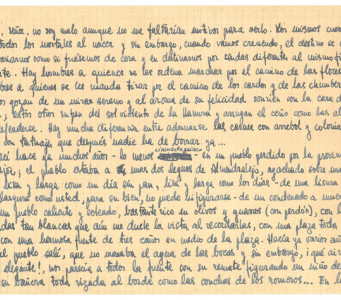 , señor, no soy malo aunque no me faltarían motivos para serlo. Los mismos cuero
todos los mortales al nacer y sin embargo, cuando vamos creciendo, el destino se
como si fuésemos de cera y en destinarnos por sendas diferentes al mismo fi
te. Hay hombres a quienes se les ordena marchar por el camino de las flores
bres a quienes se les manda tirar por el camino de los cardos y de las chumbe
gozan de un mirar sereno y al aroma de su felicidad sonríen con la cara de
otros sufren del sol violento de la llanura y arrugan el ceño como las al
defenderse. Hay mucha diferencia entre adornarse las carnes con arrebol y colonia
tatuajes que después nadie ha de borrar ya....
hace ya muchos años - lo menos cincuenta y cinco - en un pueblo perdido por la provin
; el pueblo estaba a unas dos leguas de Almendralejo, agachado sobre una
lisa y larga como un día sin pan, lisa y larga como los días - de una lisura
largura como usted, para su bien, no puede ni figurarse - de un condenado a muert
un pueblo caliente y soleado, bastante rico en olivos y guarros (con perdón), con l
tan blancas que aún me duele la vista al recordarlas, con una plaza toda
con una hermosa fuente de tres caños en medio de la plaza. Hacía ya varios añ
pueblo salí, que no manaba el agua de las bocas y, sin embargo, ¡qué air
elegante!, nos parecía a todos la fuente con su remate figurando un niño de
su bañera toda rizada al borde como las conchas de los romeros... En la